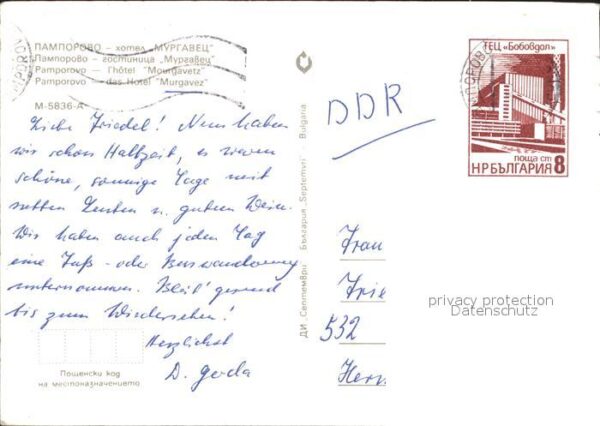 ПАМПОРОВО – хотел „МУРГАВЕЦ"
Пампорово – гостиница „Мургавец"
Pamporovo – l'hôtel "Mourgavetz"
Pamporovo – das Hotel "Murgavez"
М-5836-А
Liebe Friedel! Nun haben
wir schon Halbzeit, es waren
schöne, sonnige Tage mit
netten Leuten u. gutem Wein.
Wir haben auch jeden Tag
eine Fuß- oder Buswanderung
unternommen. Bleib' gesund
bis zum Wiedersehen!
Herzlichst
D. Gerda
Пощенски код
на местоназначението
ДИ „Септември" България "Septemvri" Bulgaria
DDR
ТЕЦ „Бобовдол"
поща ст 8
НР БЪЛГАРИЯ
Frau
Frie
532
Herr
privacy protection
Datenschutz